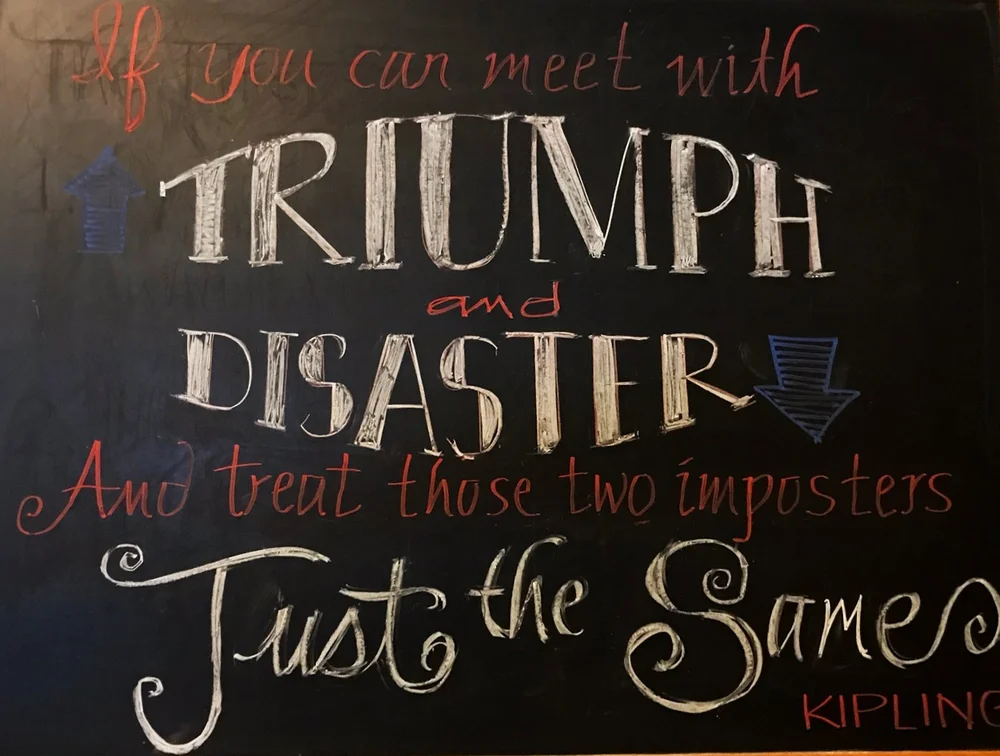 If you can meet with
TRIUMPH
and
DISASTER
And treat those two imposters
Just the Same
KIPLING